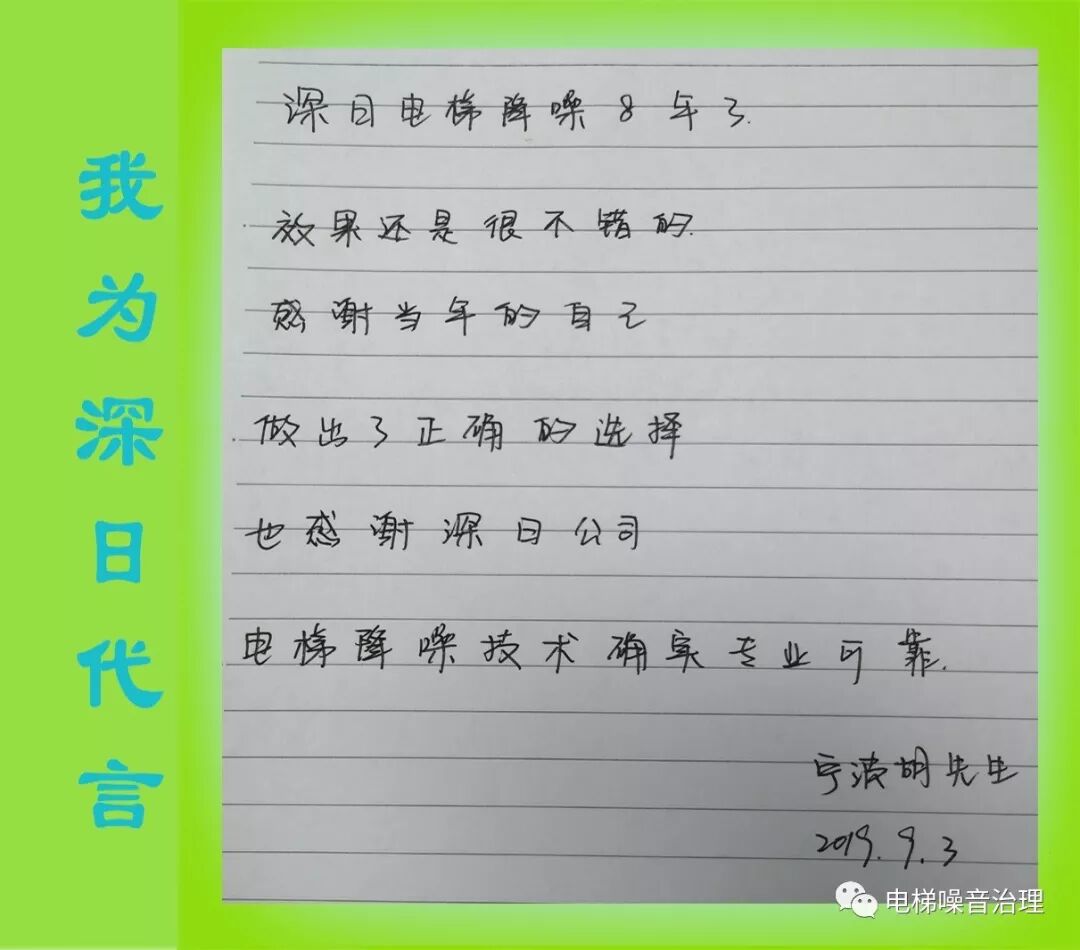 我为深日代言
深日电梯降噪8年了.
效果还是很不错的.
感谢当年的自己
做出了正确的选择
也感谢深日公司
电梯降噪技术确实专业可靠.
宁波胡先生
2019.9.3
电梯噪音治理